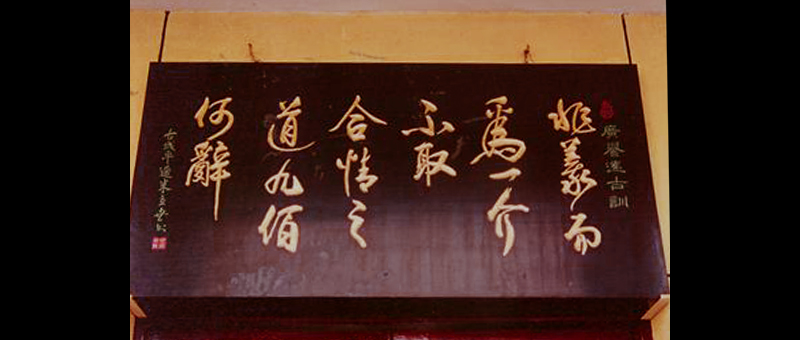 廣譽古訓
非義而
爲一介
不取
合情之
道九佰
何辭
壬戌年